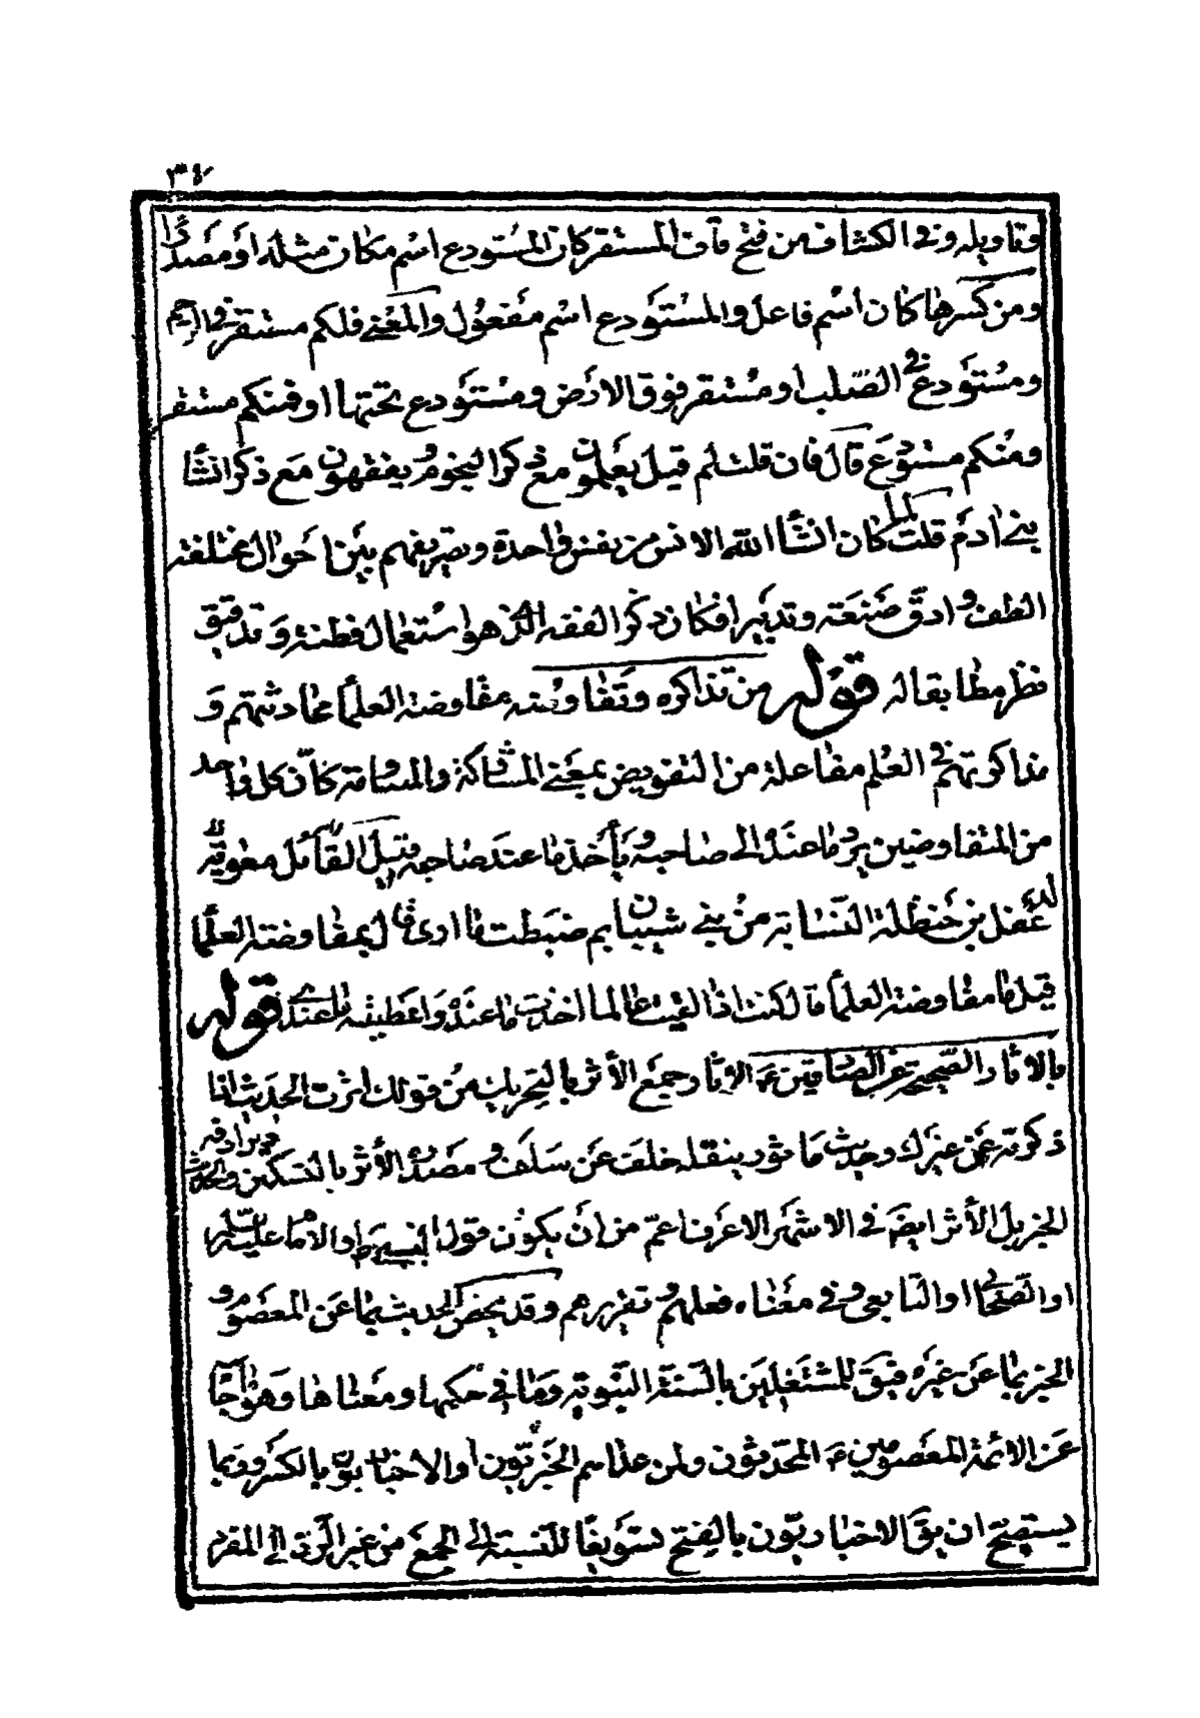 ٣٤
وتاويله وفي الكشاف من فتح قاف المستقر كان المستودع اسم مكان مثله او مصدرا
ومن كسرها كان اسم فاعل والمستودع اسم مفعول والمعنى فلكم مستقر في الرحم
ومستودع في الصلب او مستقر فوق الارض ومستودع تحتها او فمنكم مستقر
ومنكم مستودع قال فان قلت لم قيل يعلمون مع ذكر النجوم ويفقهون مع ذكر انشاء
بني ادم قلت لما كان انشاء الله الانس من نفس واحدة وتصريفهم بين احوال مختلفة
الطف وادق صنعة وتدبيرا فكان ذكر الفقه الذي هو استعمال فطنة وتدقيق
نظر مطابقا له قوله من تذاكره وتفاوضه مفاوضة العلماء محادثتهم و
مذاكرتهم في العلم مفاعلة من التفويض بمعنى المشاركة والمساماة كان كل واحد
من المتفاوضين يرد ما عنده الى صاحبه ويأخذ ما عند صاحبه قيل القائل معوية
لدغفل بن حنظلة النسابة من بني شيبان بم ضبطت ما ارى قال بمفاوضة العلماء
قيل ما مفاوضة العلماء قال كنت اذا لقيت عالما اخذت ما عنده واعطيته ما عندي قوله
بالاثار الصحيحة عن الصادقين ع الاثار جمع الأثر بالتحريك من قولك اثرت الحديث اذا
ذكرته عن غيرك وحديث ماثور ينقله خلف عن سلف ومصدره الأثر بالتسكين والحديث
ويرادفه
الخبر بل الأثر ايضا في الاشهر الاعرف اعم من ان يكون قول النبي ص او الامام عليه السلم
او الصحابي او التابعي وفي معناه فعلهم وتقريرهم وقد يخص الحديث بما عن المعصوم و
الخبر بما عن غيره فيق للمشتغلين بالسنة النبوية وما في حكمها ومعناها وهو ما جاء
عن الائمة المعصومين ع المحدثون ولمن عداهم الخبريون او الاخباريون بالكسر وربما
يستقبح ان يق الاخباريون بالفتح تسويغا للنسبة الى الجمع من غير الرد الى المفرد